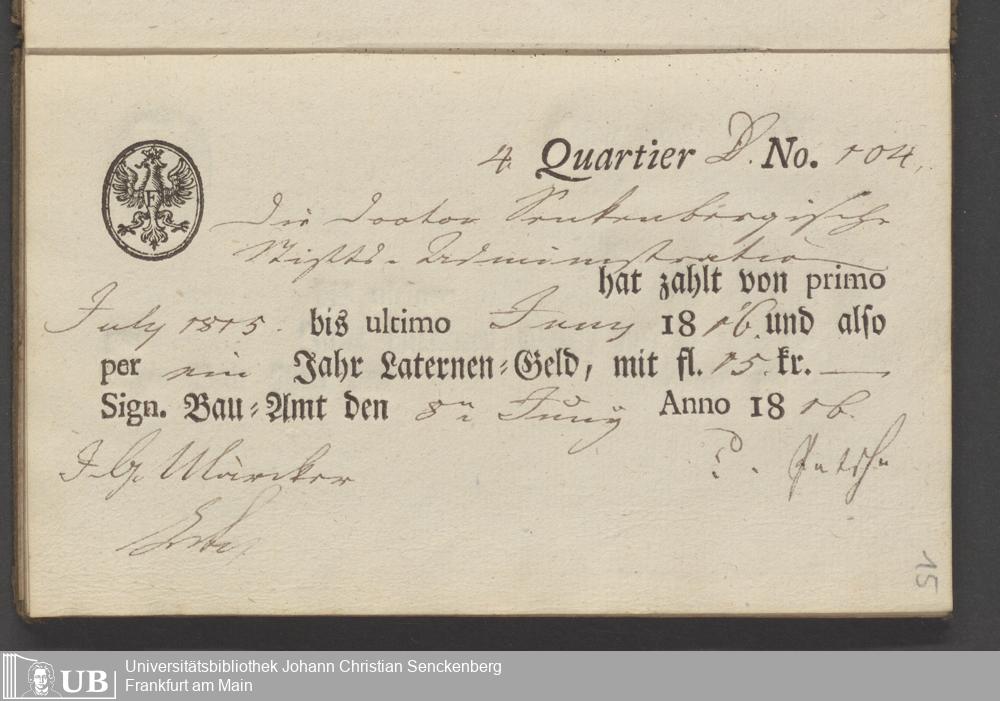 4. Quartier D. No. 104.
F
Die Doctor Senkenbergische
Stifts-Administration
hat zahlt von primo
July 1815. bis ultimo Juny 1816. und also
per ein Jahr Laternen-Geld, mit fl. 15. kr. —
Sign. Bau-Amt den 8n Juny Anno 1816.
J. G. Märcker
15
UB
Universitätsbibliothek Johann Christian Senckenberg
Frankfurt am Main